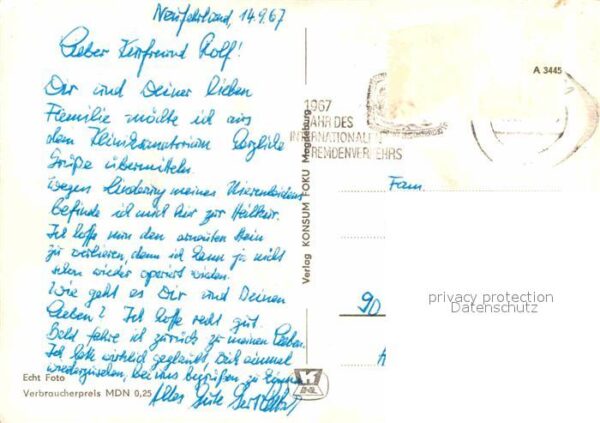 Neufahrland, 14.9.67
Lieber Kurfreund Rolf!
Dir und Deiner lieben
Familie möchte ich aus
dem Heinrich sanatorium herzliche
Grüße übermitteln.
Wegen Linderung meines Nierenleidens
befinde ich mich hier zur Heilkur.
Ich hoffe nun den erneuten Stein
zu verlieren, denn ich kann ja nicht
schon wieder operiert werden.
Wie geht es Dir und Deinen
Lieben? Ich hoffe recht gut.
Bald fahre ich zurück zu meinen Lieben.
Ich hatte wirklich geglaubt, Dich einmal
wiederzusehen, bei uns begrüßen zu können
Alles Gute
Echt Foto
Verbraucherpreis MDN 0,25
Verlag KONSUM FOKU Magdeburg
A 3445
1967
JAHR DES
INTERNATIONALEN
FREMDENVERKEHRS
Fam.
90
privacy protection
Datenschutz